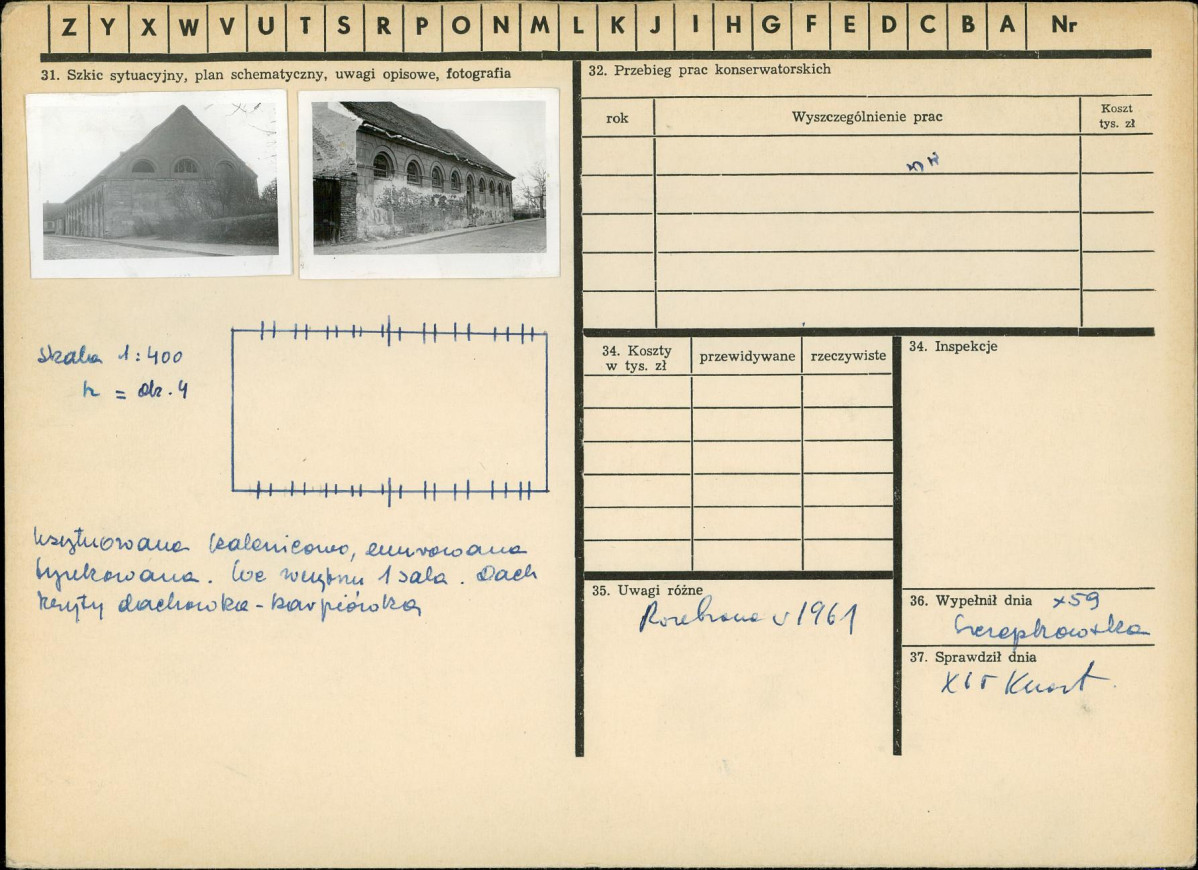 Z Y X W V U T S R P O N M L K J I H G F E D C B A Nr
31. Szkic sytuacyjny, plan schematyczny, uwagi opisowe, fotografia
skala 1:400
h = ok. 4
usytuowana kalenicowo, murowana
tynkowana. We wnętrzu 1 sala. Dach
kryty dachówka-karpiówka
32. Przebieg prac konserwatorskich
rok
Wyszczególnienie prac
Koszt
tys. zł
34. Koszty
w tys. zł
przewidywane
rzeczywiste
34. Inspekcje
35. Uwagi różne
Rozebrana w 1961
36. Wypełnił dnia x59
Szczepkowska
37. Sprawdził dnia